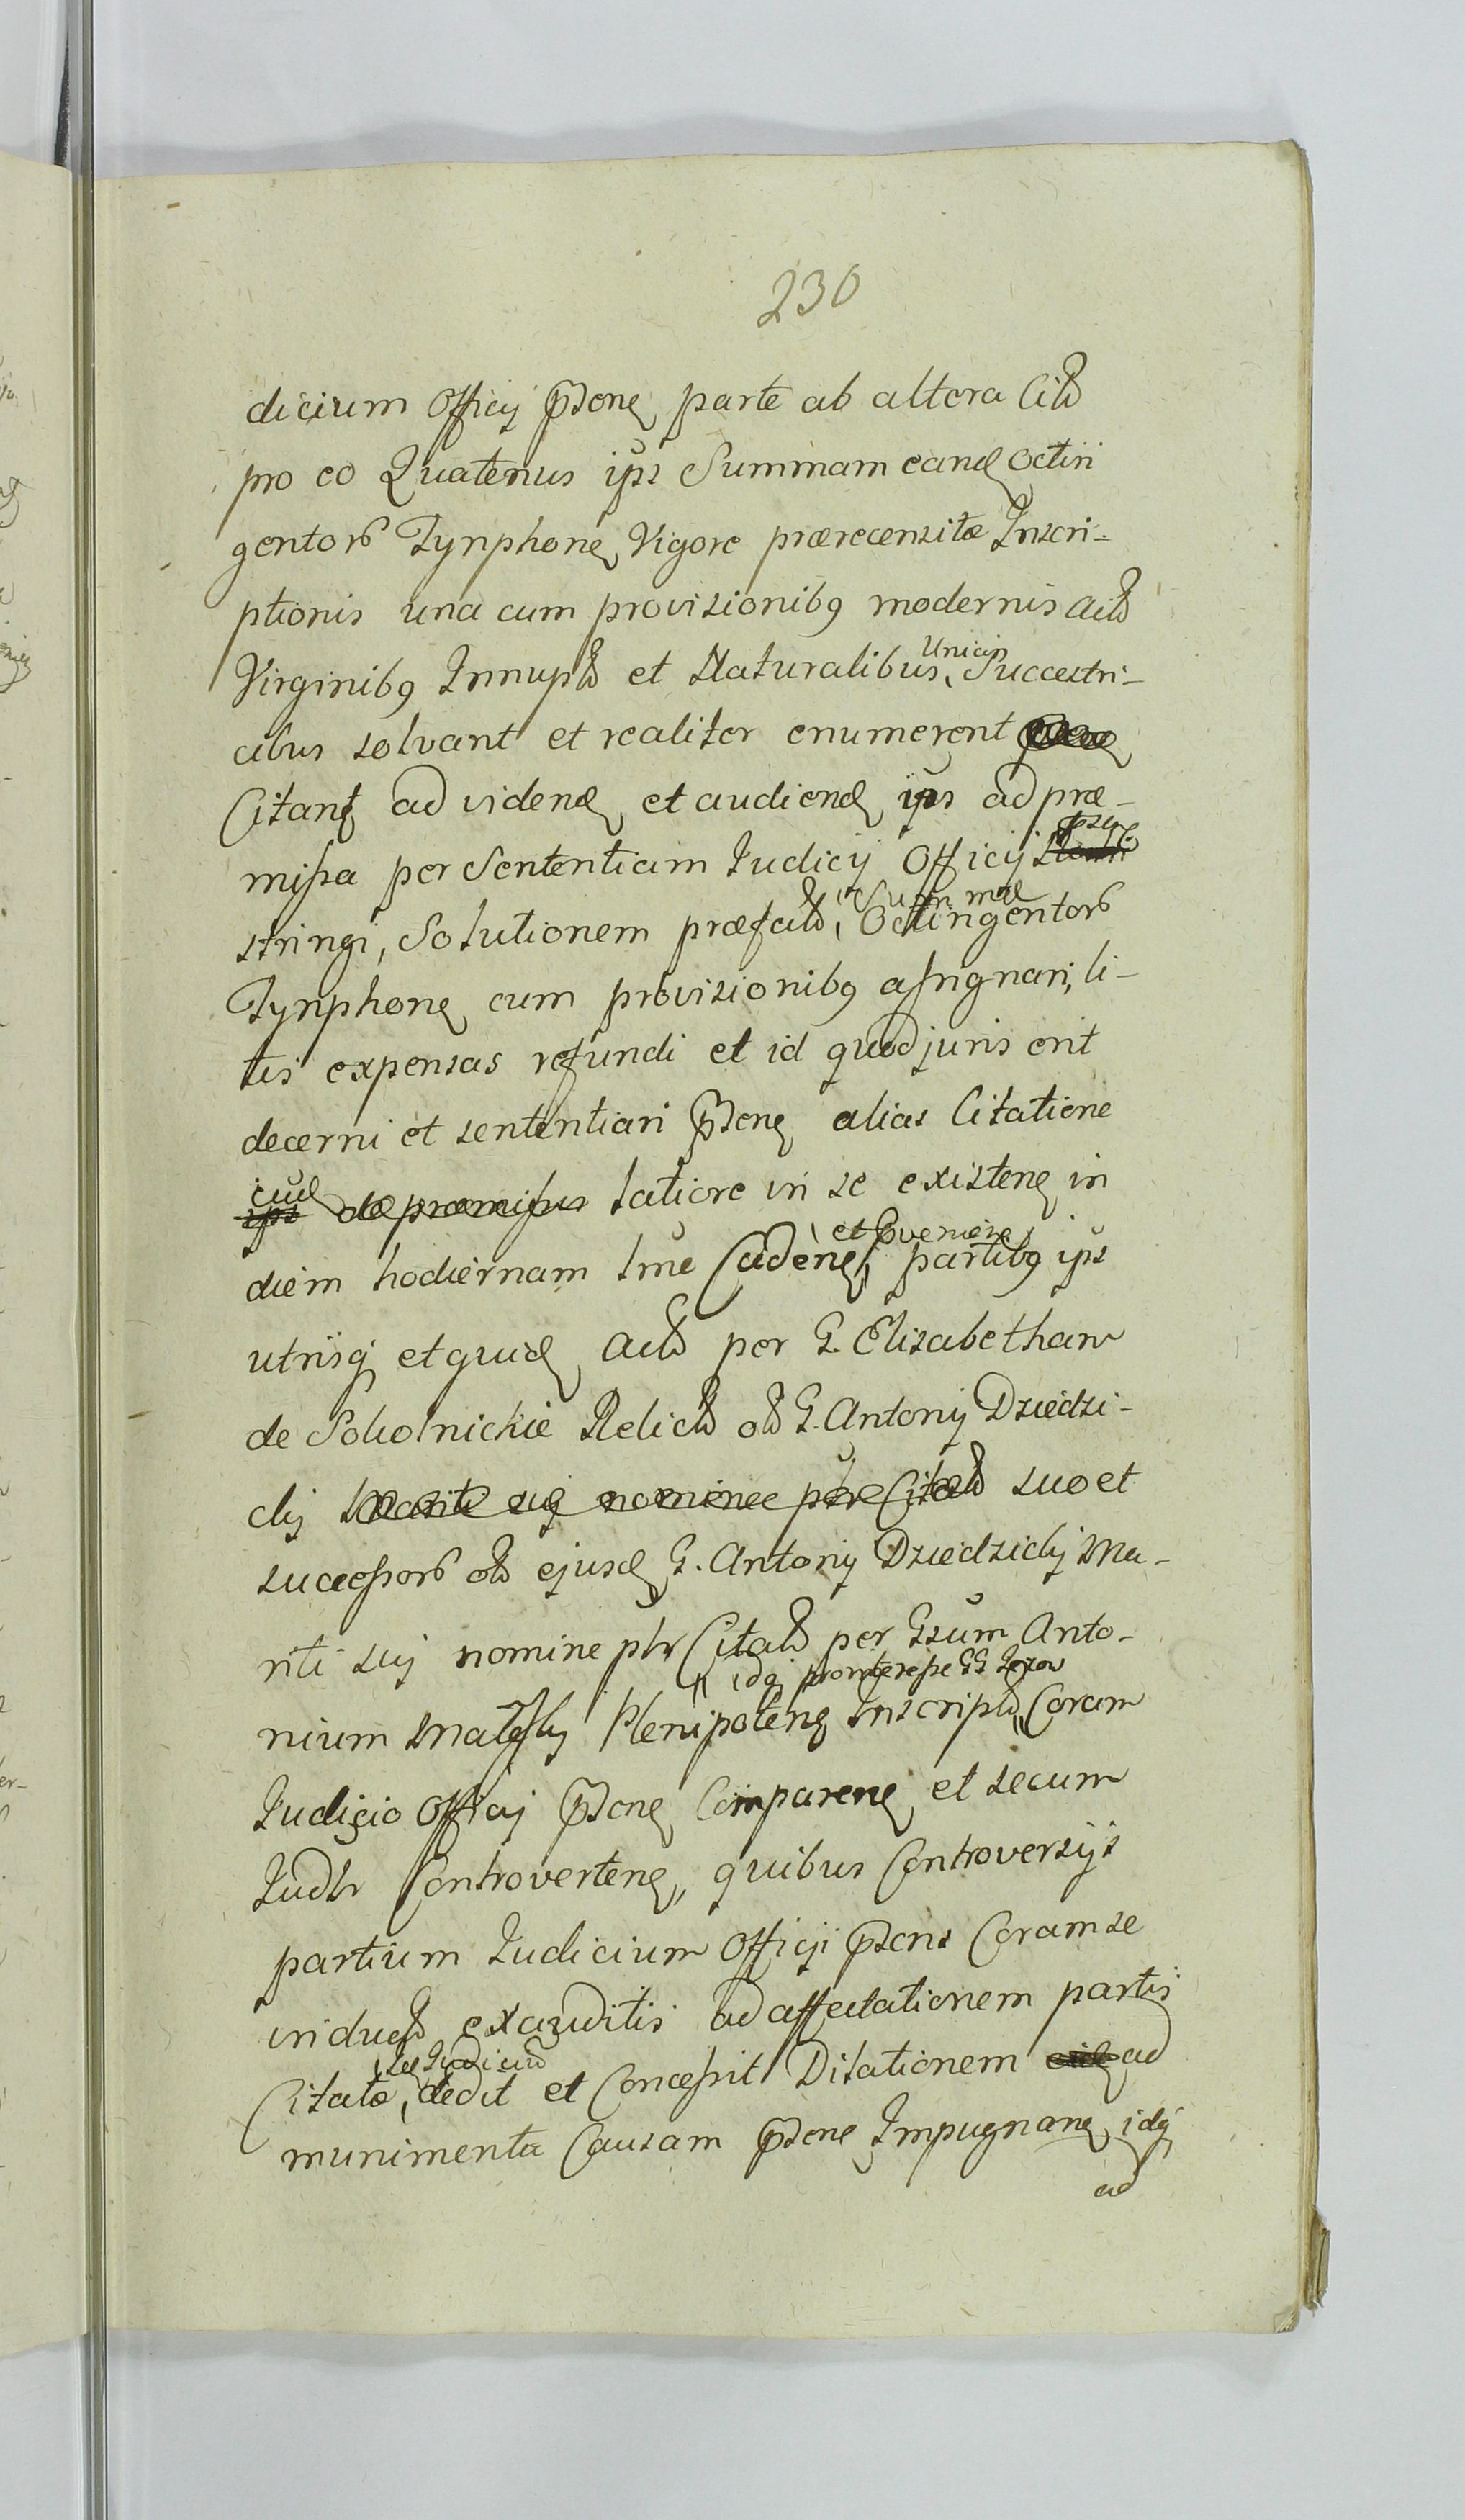 230
dicium Officij pñtone parte ab altera Citã
pro eo Quatenus ips Summam eand Octin
gentorũ Tynphone Vigore prærecensitæ Inscri-
ptionis una cum provisionibq modernis Actã
Virginibq Innuptã et Naturalibus Unicis Succestri-
cibus solvant et realiter enumerent
Citant ad vidend et audiend ips ad præ-
missa per Sententiam Judicij Officij
stringi, Solutionem præfatã Summæ Octingentorũ
Tynphone cum provisionibq assignari, li-
tis expensas refundi et id quod juris erit
decerni et sententiari pñtone alias Citatione
latiore in se existene in
diem hodiernam tme Cadene, et partibq ips
utrisq et quid Actã per G. Elisabetham
de Sokolnickie Relictã olã G. Antonij Dziedzi-
cij Mariti sui nomine ptr Citatã suo et
successorũ olã ejusd G. Antonij Dziedzicij Ma-
riti sui nomine ptr Citatã per Gsum Anto-
nium Plenipotene Inscriptã, Coram
idq
Judicio Officij pñtone Comparene et secum
Judtr Controvertene, quibus Controversijs
partium Judicium Officij pñtons Coram se
inductã exauditis ad affectationem partis
Citatæ, Judicium dedit et Concessit Dilationem ad
munimenta Causam pñtone Impugnane, idq
ad